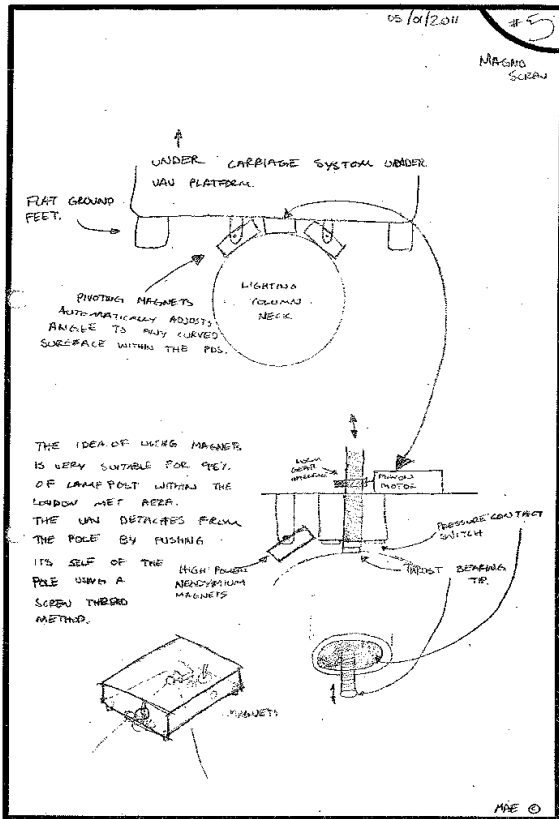 05/01/2011
#5
MAGNO
SCREW
UNDER CARRIAGE SYSTEM UNDER
UAV PLATFORM.
FLAT GROUND
FEET.
LIGHTING
COLUMN
NECK
PIVOTING MAGNETS
AUTOMATICALLY ADJUSTS
ANGLE TO ANY CURVED
SURFACE WITHIN THE PDS.
THE IDEA OF USING MAGNETS
IS VERY SUITABLE FOR 99%.
OF LAMP POST WITHIN THE
LONDON MET AREA.
THE UAV DETACHES FROM
THE POLE BY PUSHING
ITS SELF OF THE
POLE USING A
SCREW THREAD
METHOD.
WORM
GEAR
MOTOR
PRESSURE CONTACT
SWITCH
THRUST BEARING
TIP.
HIGH POWER
NEODYMIUM
MAGNETS
MAGNETS
MAE ©